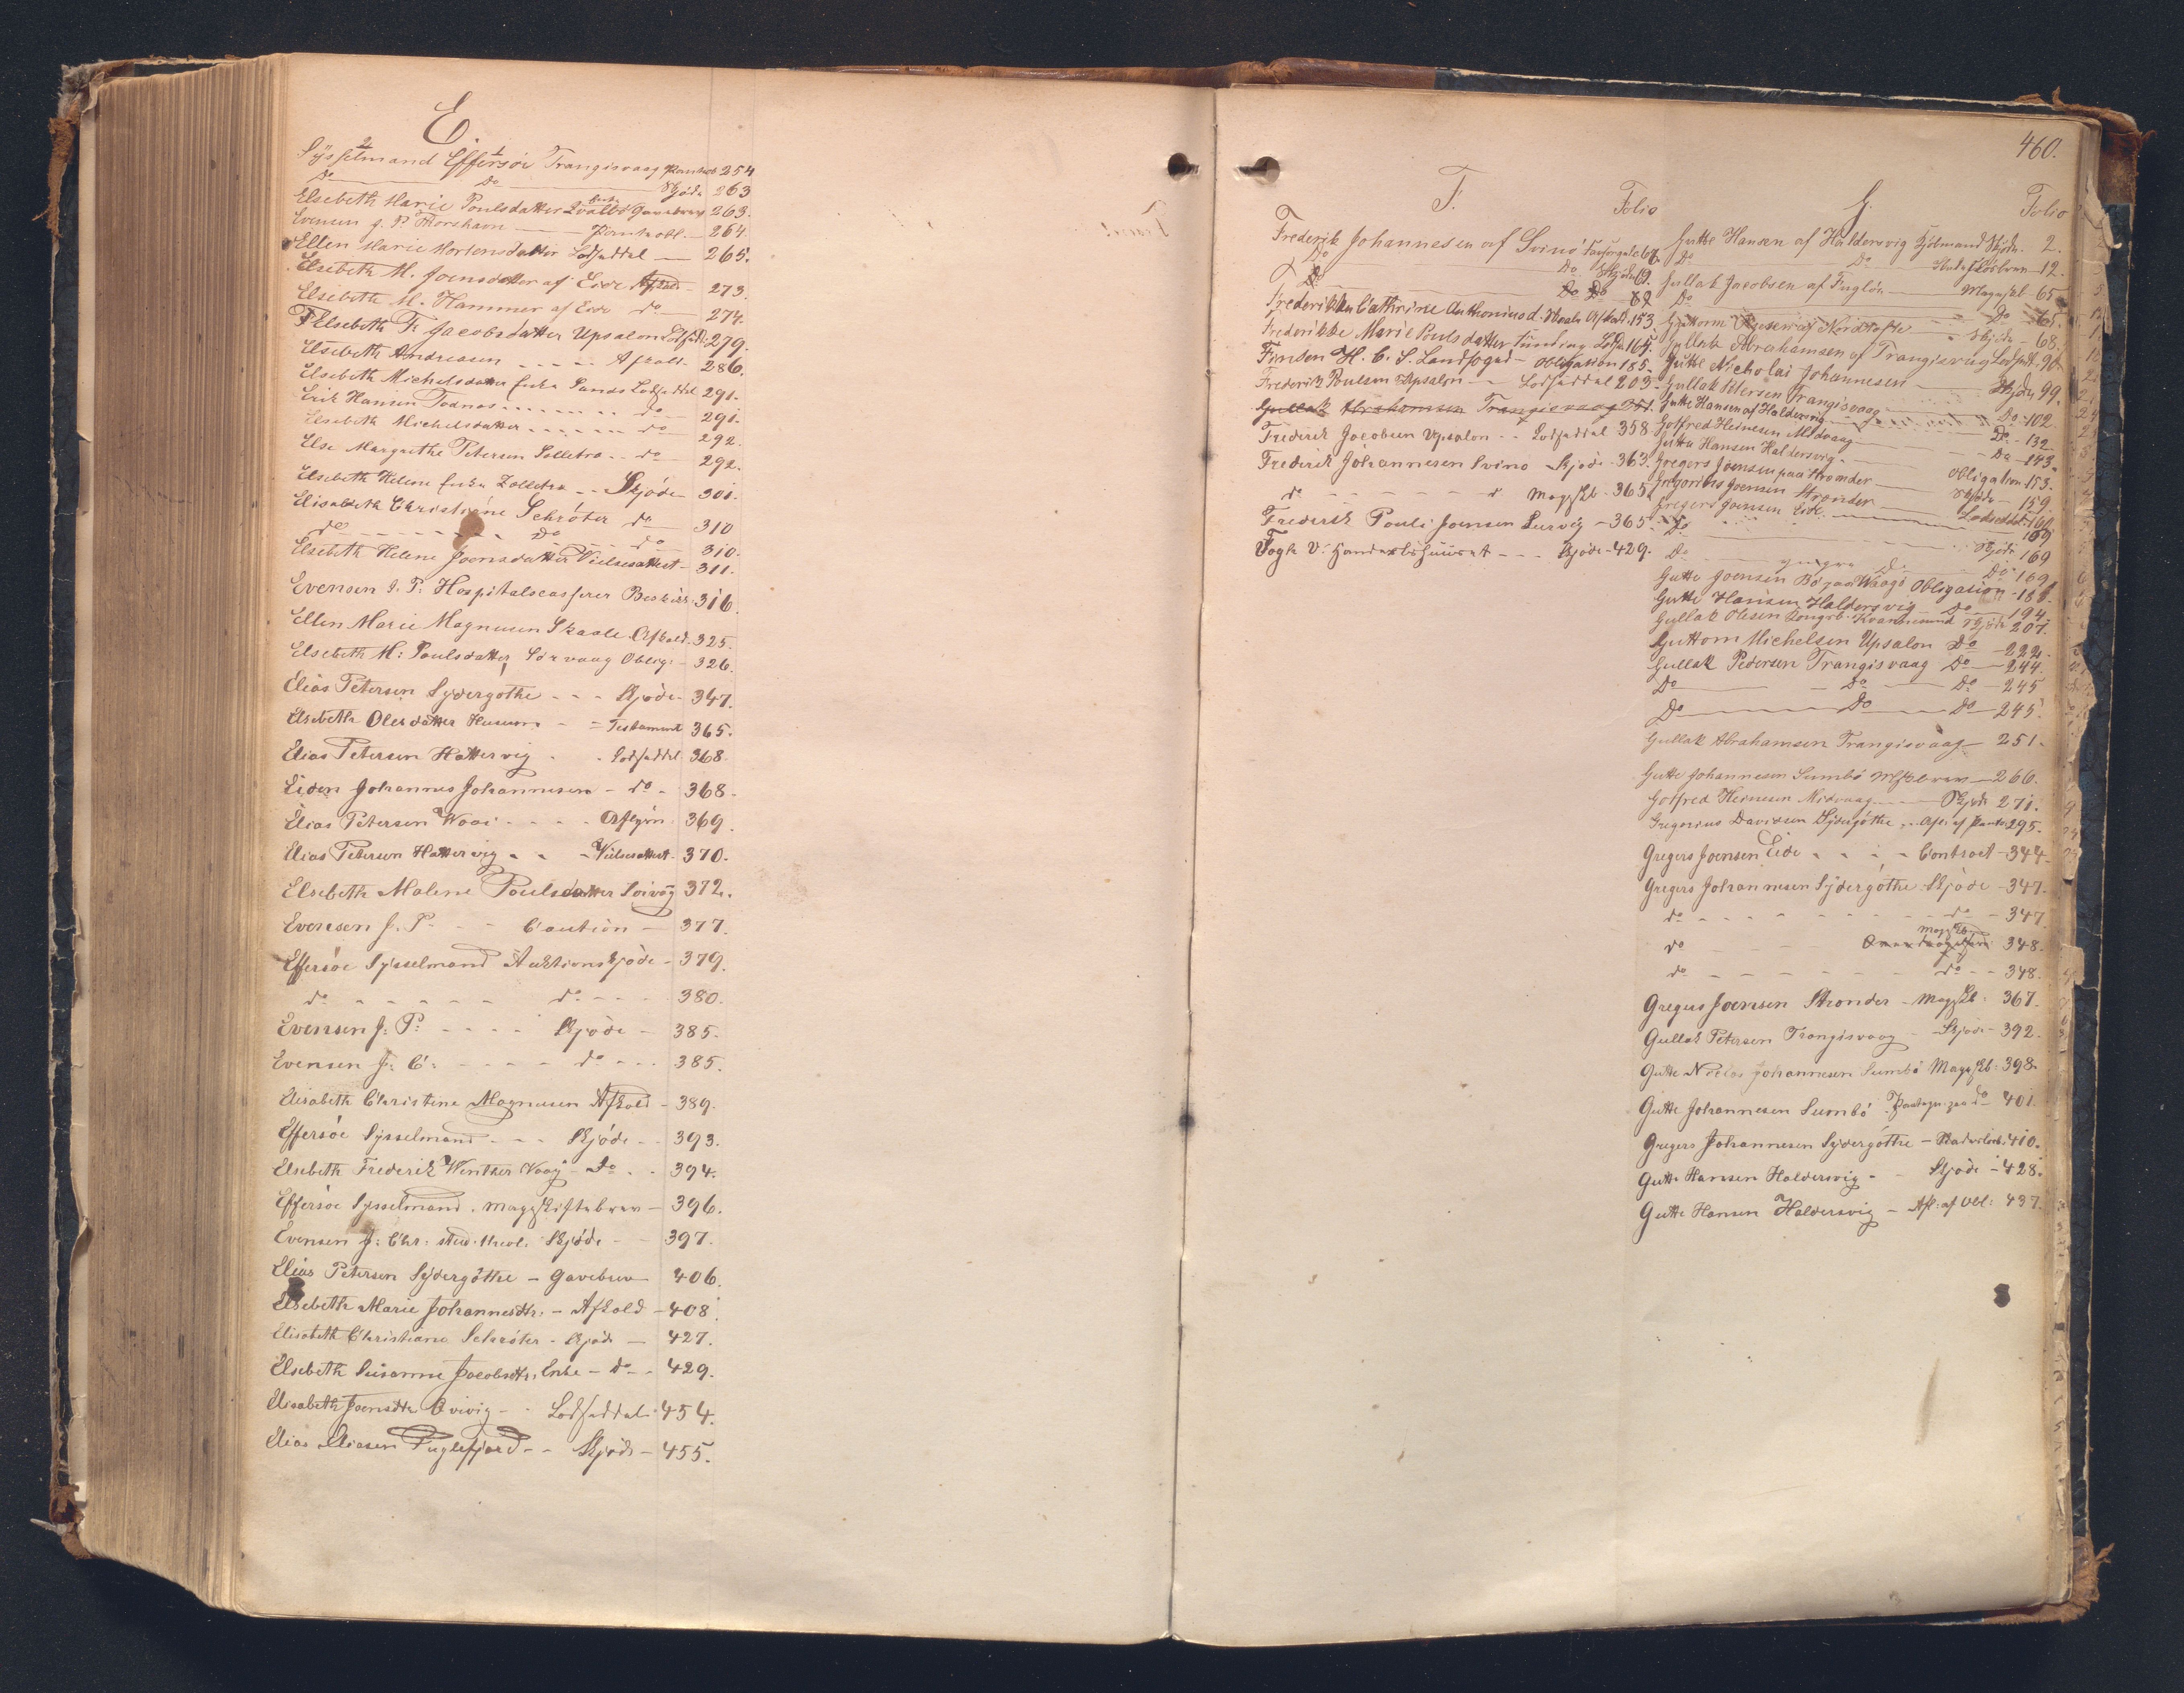 E.
Sysselmand Effersöe Trangisvaag Pantob 254
Do Do Skjöde 263
Elsebeth Marie Poulsdatter Qvalbö Gavebrev 263.
Evensen J. P. Thorshavn Panteobl. 264.
Ellen Marie Mortensdatter Lodseddel 265.
Elsebeth M. Joensdatter af Eide Afkald 273.
Elsebeth M. Hammer af Eide do 274.
Elsebeth Fr. Jacobsdatter Upsalon Lodsedl. 279.
Elsebeth Andreasen Afkald 286.
Elsebeth Michelsdatter Enke Sands Lodseddel 291.
Erik Hansen Todnæs do 291.
Elsebeth Michelsdatter do 292.
Else Margrethe Petersen Solletro do 292.
Elsebeth Helene Enke Zolletra Skjöde 301.
Elisabeth Christiane Schröter do 310
do Do do 310.
Elsebeth Helene Joensdatter Vielsesattest 311.
Evensen J. P. Hospitalscasserer Beskikk. 316.
Ellen Marie Magnusen Skaale Afkald. 325.
Elsebeth M: Poulsdatter, Sörvaag Oblig: 326.
Elias Petersen Sydergöthe Skjöde 347.
Elsebeth Olesdatter Husum Testament 365.
Elias Petersen Hattervig Lodseddel 368.
Eiden Johannes Johannesen do 368.
Elias Petersen Waai 369.
Elias Petersen Hattervig Vielsesattest 370.
Elsebeth Malene Poulsdatter 372.
Evensen J. P. Caution 377.
Effersöe Sysselmand Auktionskjöde 379.
do do 380.
Evensen J: P: Skjöde 385.
Evensen J: C: do 385.
Elisabeth Christine Magnusen Afkald 389.
Effersöe Sysselmand Skjöde 393.
Elsebeth Frederik Winther Vaag Do 394.
Effersöe Sysselmand. Mageskiftebrev 396.
Evensen J: Chr: stud. theol. Skjöde 397.
Elias Petersen Sydergöthe Gavebrev 406.
Elsebeth Marie Johannesdtr. Afkald 408.
Elisabeth Christiane Schröter Skjöde 427.
Elsebeth Susanne Jacobsdtr. Enke do 429.
Elisabeth Joensdtr. Qvivig Lodseddel 454.
Elias Eliasen Fuglefjord Skjöde 455.
460.
F. Folio
Frederik Johannesen af Svinö 64.
Do Do Skjöde 19.
Do Do Do 82
Frederikke Cathrine Anthoniusd. Afkald. 153.
Frederikke Marie Poulsdatter Lods. 165.
Finsen H. C. S. Landfoged Obligation 185.
Frederik Poulsen Upsalon Lodseddel 203.
Gullak Abrahamsen Trangisvaag 251.
Frederik Jacobsen Upsalon Lodseddel 358.
Frederik Johannesen Svinö Skjöde 363.
do d Magsk. 365.
Frederik Pouli Joensen Lervig 365.
Fogh V: Handelsfuldmægt Skjöde 429.
G. Folio
Gutte Hansen af Haldersvig Skjöde 2.
Do Do 12.
Gullak Jacobsen af Fuglö Magsk. 65.
Do Do 65.
Guttorm af Nordtofte Skjöde 68.
Gullak Abrahamsen af Trangisvaag Lodsedl. 90.
Gutte Nicholai Johannesen Skjöde 99.
Gullak Petersen Trangisvaag Do 102.
Gutte Hansen af Haldersvig Do 132
Gotfred Heinesen Midvaag Do 143.
Gutte Hansen Haldersvig Obligation 153.
Gregers Joensen paa Strænder Skjöde 159.
Gregorius Joensen Strænder Lodseddel 160.
Gregers Joensen Eide 169
Do Skjöde 169
Do Do 169
Gutte Joensen Bö paa Waagö Obligation 186.
Gutte Hansen Haldersvig Do 194.
Gullak Olesen Kvannesund Skjöde 207.
Guttom Michelsen Upsalon Do 222.
Gullak Pedersen Trangisvaag Do 244.
Do Do Do 245
Do Do Do 245.
Gullak Abrahamsen Trangisvaag 251.
Gutte Johannesen Sumbö 266.
Gotfred Heinesen Midvaag Skjöde 271.
Gregorius Davidsen Sydergöthe, Afl: af Pante 295.
Gregers Joensen, Eide Contract 344.
Gregers Johannesen Sydergöthe Skjöde 347.
do do 347
do Mageskb 348.
do do 348.
Gregers Joensen Strænder Magesk: 367.
Gullak Petersen Trangisvaag Skjöde 392.
Gutte Niclas Johannesen Sumbö Magesk: 398.
Gutte Johannesen Sumbö do 401.
Gregers Johannesen Sydergöthe 410.
Gutte Hansen Haldersvig Skjöde 428.
Gutte Hansen Haldersvig Afl: af Obl: 437.